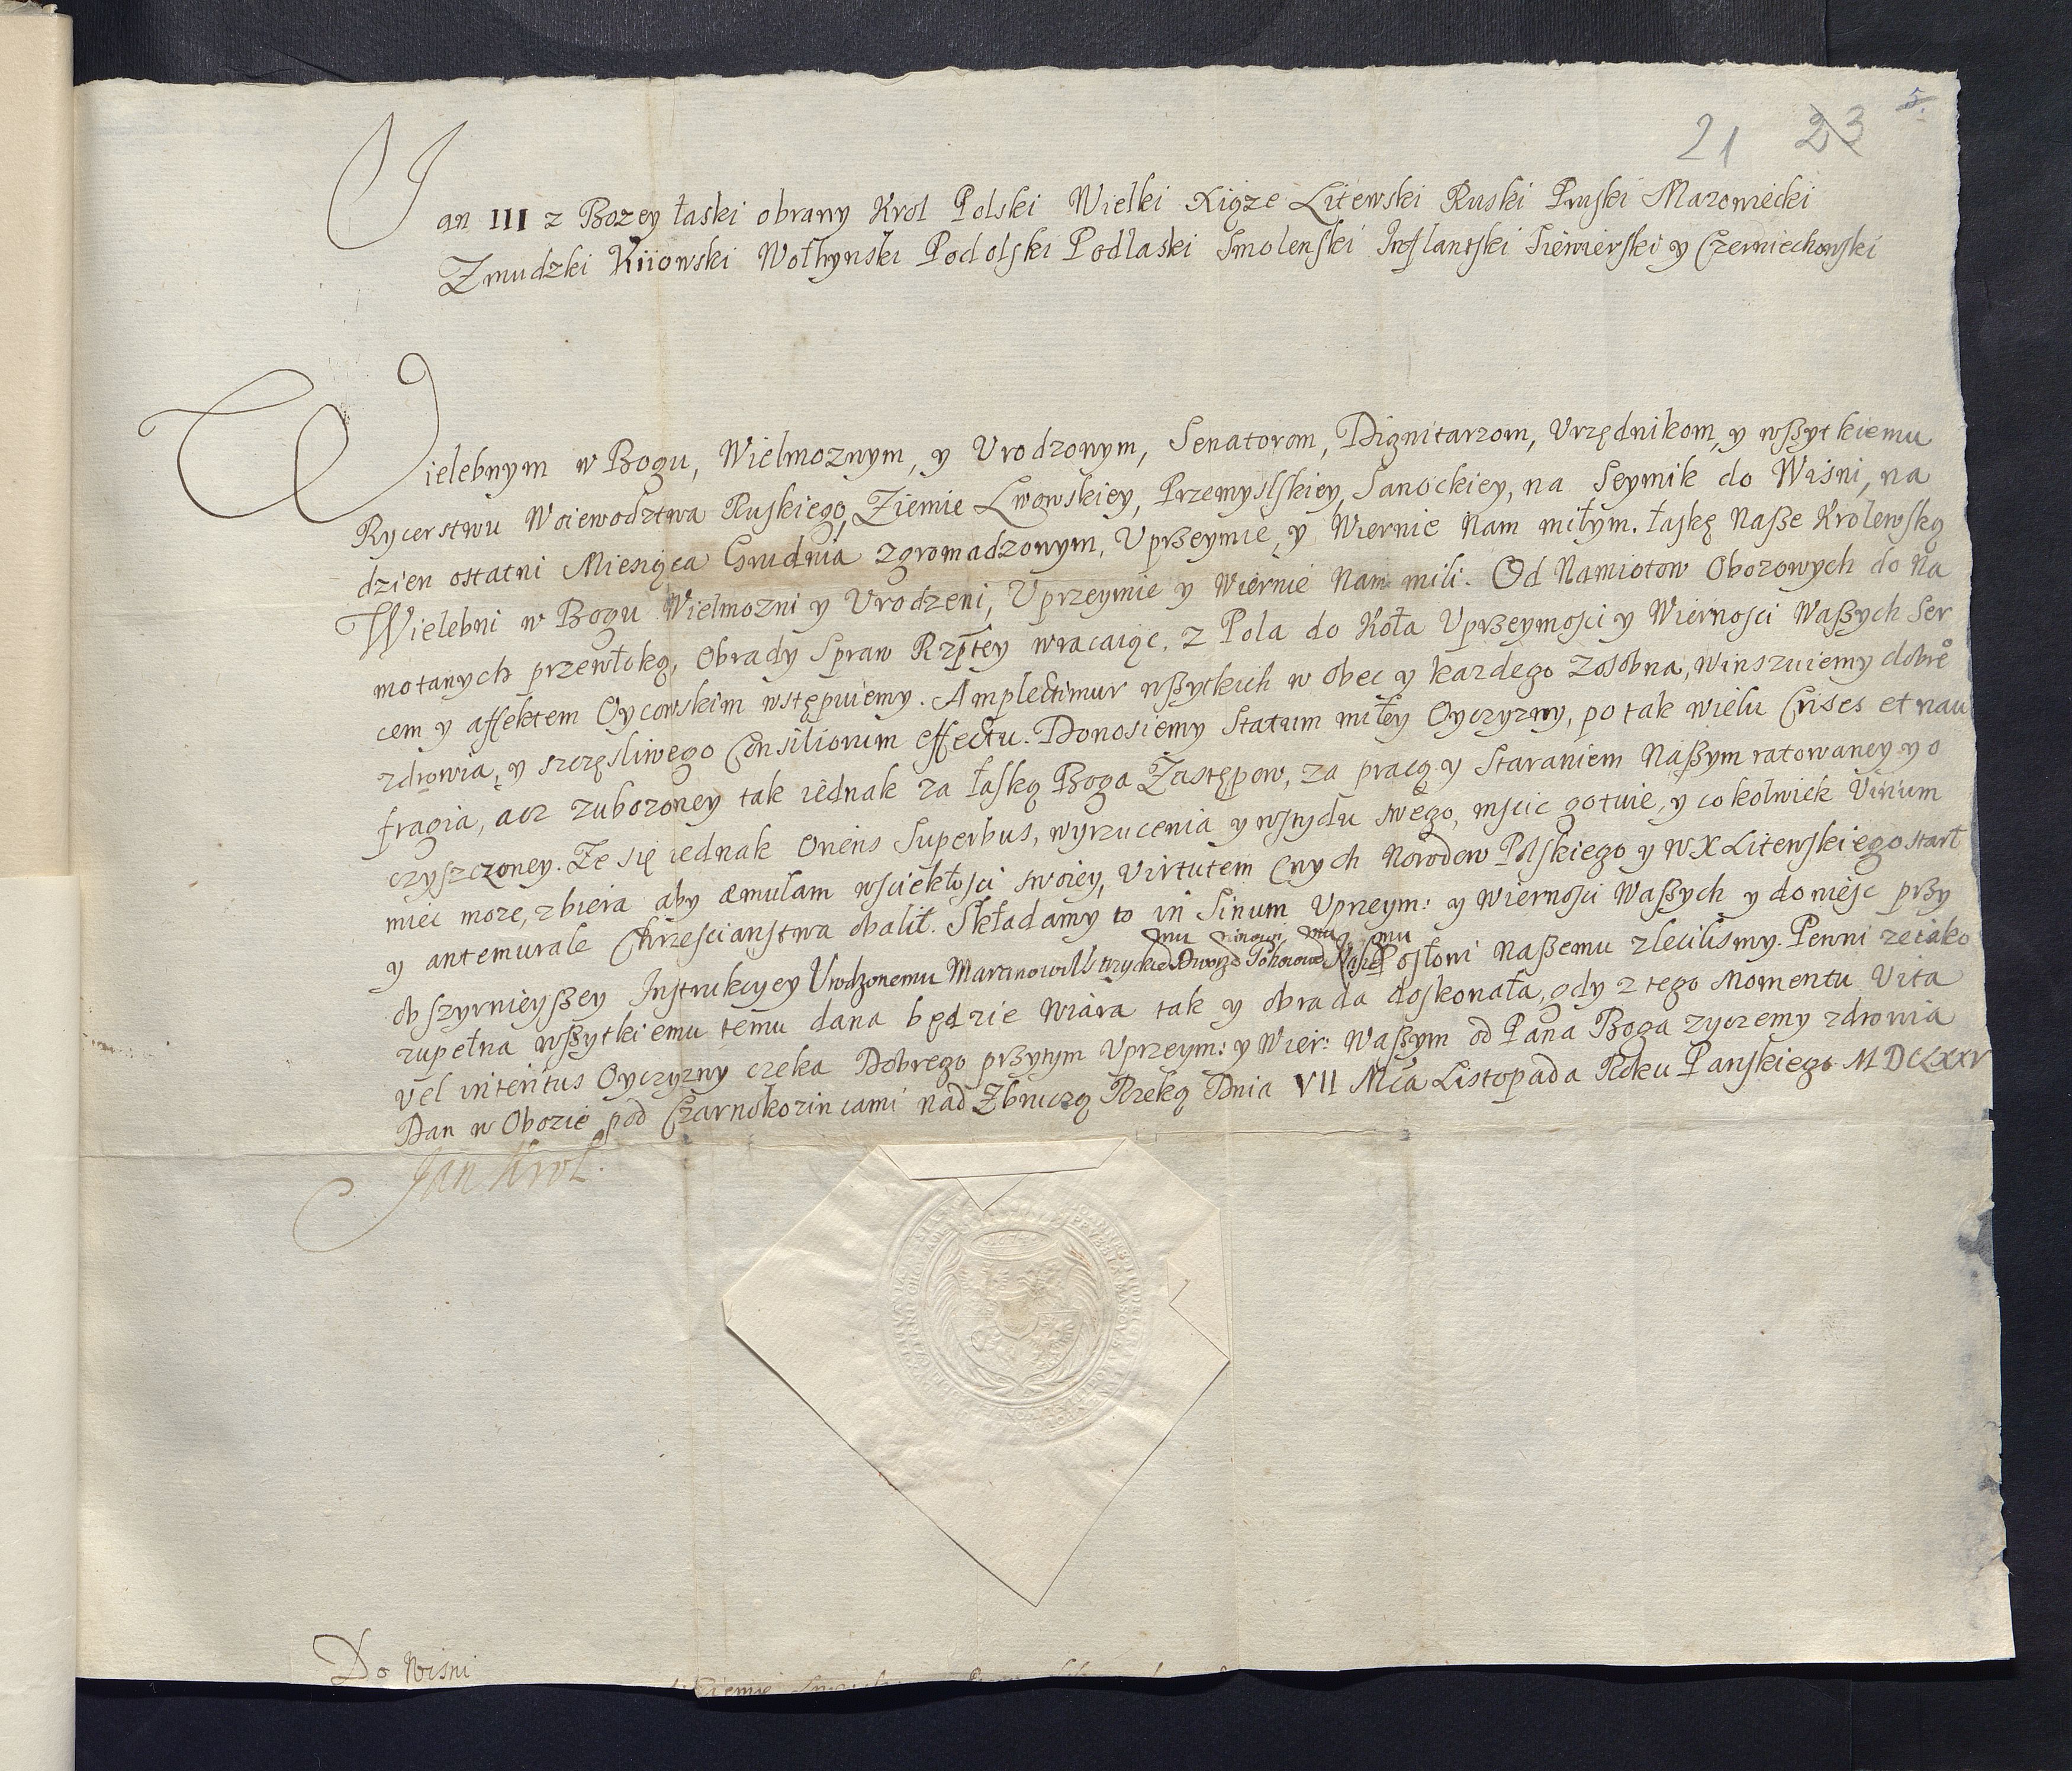 21 23 5.
Jan III z Bozey łaski obrany Krol Polski Wielki Xiąze Litewski Ruski Pruski Mazowiecki
Zmudzki Kiiowski Wołhynski Podolski Podlaski Smolenski Inflantski Siewierski y Czerniechowski
Wielebnym w Bogu, Wielmoznym, y Urodzonym, Senatorom, Dignitarzom, Vrzędnikom, y wßytkiemu
Rycerstwu Woiewodztwa Ruskiego, Ziemie Lwowskiey, Przemyslskiey, Sanockiey, na Seymik do Wisni, na
dzien ostatni Miesiąca Grudnia zgromadzonym, Uprzeymie, y Wiernie Nam miłym. łaskę Naße Krolewską
Wielebni w Bogu Wielmozni y Vrodzeni, Uprzeymie y Wiernie Nam mili. Od Namiotow Obozowych do Na
motanych przewłoką, Obrady Spraw Rzptey wracaiąc, z Pola do Koła Uprzeymosci y Wiernosci Waßych Ser
cem y affektem Oycowskim wstępuiemy. Amplectimur wßytkich w obec y kazdego zosobna, winszuiemy dobreo
zdrowia, y szczęsliwego Consiliorum effectu. Donosiemy Statum miłey Oyczyzny, po tak wielu Crises et nau
fragia, acz zubozoney tak iednak za łaską Boga Zastępow, za pracą y Staraniem Naßym ratowaney y o
czyszczoney. Ze się iednak Oriens Superbus, wyrzucenia y wstydu swego, mscic gotuie, y cokolwiek Virium
miec moze, zbiera aby æmulam wsciekłosci swoiey, Virtutem Cnych Norodow Polskiego y W X Litewskiego starł
y antemurale Chrzescianstwa obalił. Składamy to in Sinum Uprzeym: y Wiernosci Waßych y doniesc przy
obszyrnieyßey Instrukcyey Urodzonemu Posłowi Naßemu zlecilismy. Pewni ze iako
zupełna wßytkiemu temu dana będzie Wiara tak y obrada doskonała, gdy z tego Momentu Vita
vel interitus Oyczyzny czeka Dobrego przytym Uprzeym: y Wier: Waßym od Pana Boga zyczemy zdrowia
Dan w Obozie pod Czarnokozincami nad Zbruczą Rzeką Dnia VII Mca Listopada Roku Panskiego MDCLXXV
Jan Krol.
Do Wisni